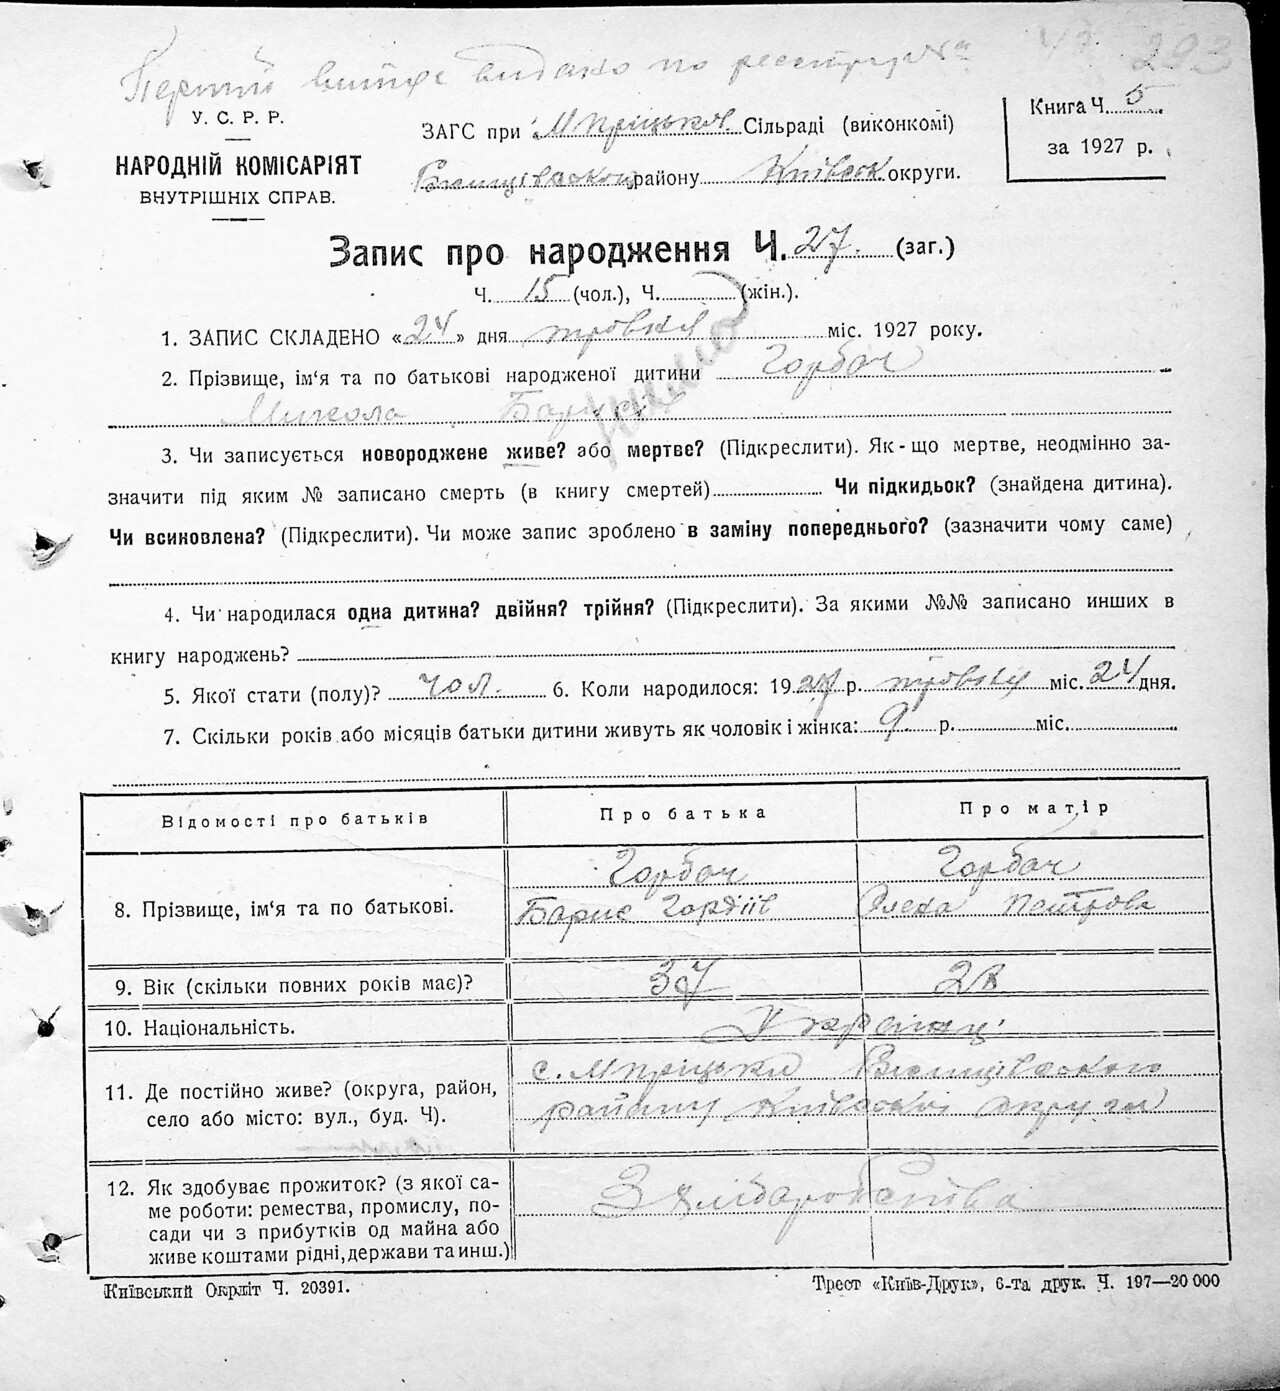 Первий випис видано по реєстру №
293
У. С. Р. Р.
НАРОДНІЙ КОМІСАРІЯТ
ВНУТРІШНІХ СПРАВ.
ЗАГС при Мприцькой Сільраді (виконкомі)
району Київськ округи.
Книга Ч. 5
за 1927 р.
Запис про народження Ч. 27. (заг.)
Ч. 15 (чол.), Ч. (жін.).
1. ЗАПИС СКЛАДЕНО «24» дня тровня міс. 1927 року.
2. Прізвище, ім'я та по батькові народженої дитини Горбач
Микола
3. Чи записується новороджене живе? або мертве? (Підкреслити). Як-що мертве, неодмінно за-
значити під яким № записано смерть (в книгу смертей) Чи підкидьок? (знайдена дитина).
Чи всиновлена? (Підкреслити). Чи може запис зроблено в заміну попереднього? (зазначити чому саме)
4. Чи народилася одна дитина? двійня? трійня? (Підкреслити). За якими №№ записано инших в
книгу народжень?
5. Якої стати (полу)? чол. 6. Коли народилося: 1927 р. тровня міс. 24 дня.
7. Скільки років або місяців батьки дитини живуть як чоловік і жінка: 9 р. міс.
Відомості про батьків Про батька Про матір
8. Прізвище, ім'я та по батькові. Горбач Горбач
Барис Гордіів Олена Петрова
9. Вік (скільки повних років має)? 37 28
10. Національність. Українці
11. Де постійно живе? (округа, район,
село або місто: вул., буд. Ч).
с. Мприцьки
району Київської округи
12. Як здобуває прожиток? (з якої са-
ме роботи: ремества, промислу, по-
сади чи з прибутків од майна або
живе коштами рідні, держави та инш.)
З хліборобства
Київський Окрліт Ч. 20391.
Трест «Київ-Друк», 6-та друк. Ч. 197—20 000